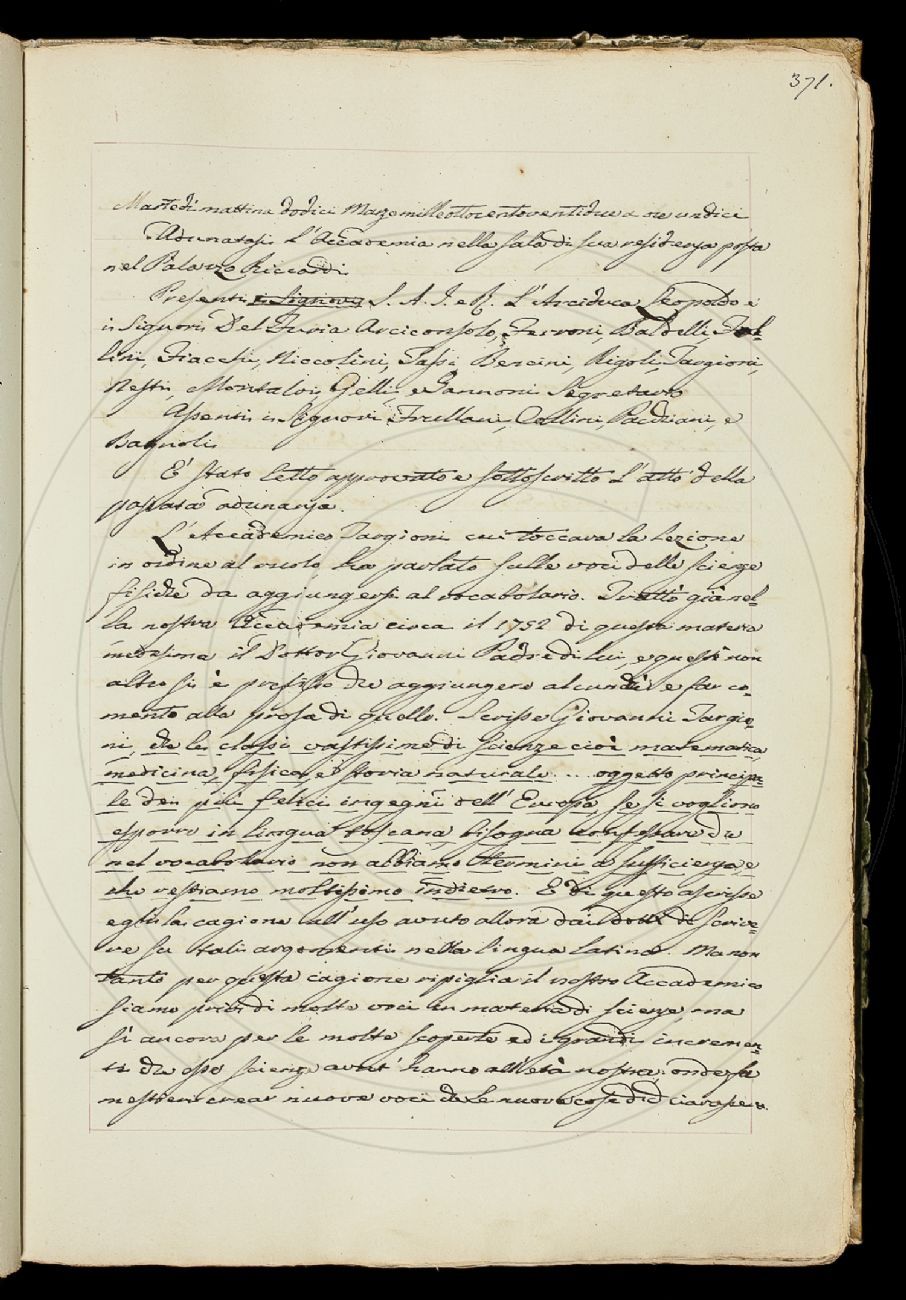 371.
Martedì mattina dodici Marzo milleottocentoventidue a ore undici
Adunatasi L'Accademia nella sala di sua residenza posta
nel Palazzo Riccardi
Presenti i Signori S. A. I. e R. L'Arciduca Leopoldo e
i Signori Del Furia Arciconsolo, Ferroni, Baldelli, Fol-
lini, Fiacchi, Niccolini, Sassi, Bencini, Rigoli, Targioni,
Nesti, Montalvi, Gelli, e Zannoni Segretario
Assenti i Signori Frullani, Collini, Pacchiani, e
Bagnoli
E' stato letto approvato e sottoscritto L'atto della
passata adunanza.
L'Accademico Targioni cui toccava la Lezione
in ordine al ruolo ha parlato sulle voci delle scienze
fisiche da aggiungersi al vocabolario. Trattò già nel-
la nostra Accademia circa il 1752 di questa materia
medesima il Dottor Giovanni Padre di lui, e questi non
altro si è prefisso che aggiungere alcunchè e far co-
mento alla prosa di quello. Scrisse Giovanni Targio-
ni, che le classi vastissime di scienze cioè matematica,
medicina, fisica, e storia naturale ... oggetto principa-
le dei più felici ingegni dell'Europa, se si vogliono
esporre in lingua toscana, bisogna confessare che
nel vocabolario non abbiamo termini a sufficienza, e
che restiamo moltissimo indietro. E di questo ascrisse
egli la cagione all'uso avuto allora dai dotti di scrive-
re su tali argomenti nella lingua latina. Ma non
tanto per questa cagione ripiglia il nostro Accademico
siamo privi di molte voci in materia di scienze, ma
sì ancora per le molte scoperte ed i grandi incremen-
ti che esse scienze avut' hanno all'età nostra; onde fa
mestieri crear nuove voci che le nuove cose